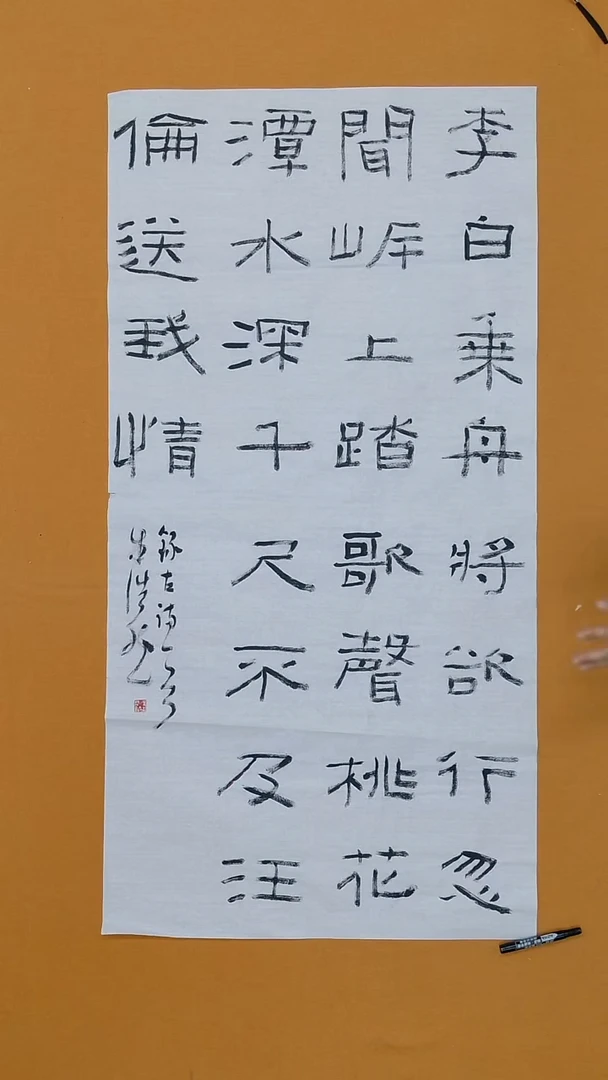 李白乘舟將欲行忽
聞岸上踏歌聲桃花
潭水深千尺不及汪
倫送我情
錄古詩一首